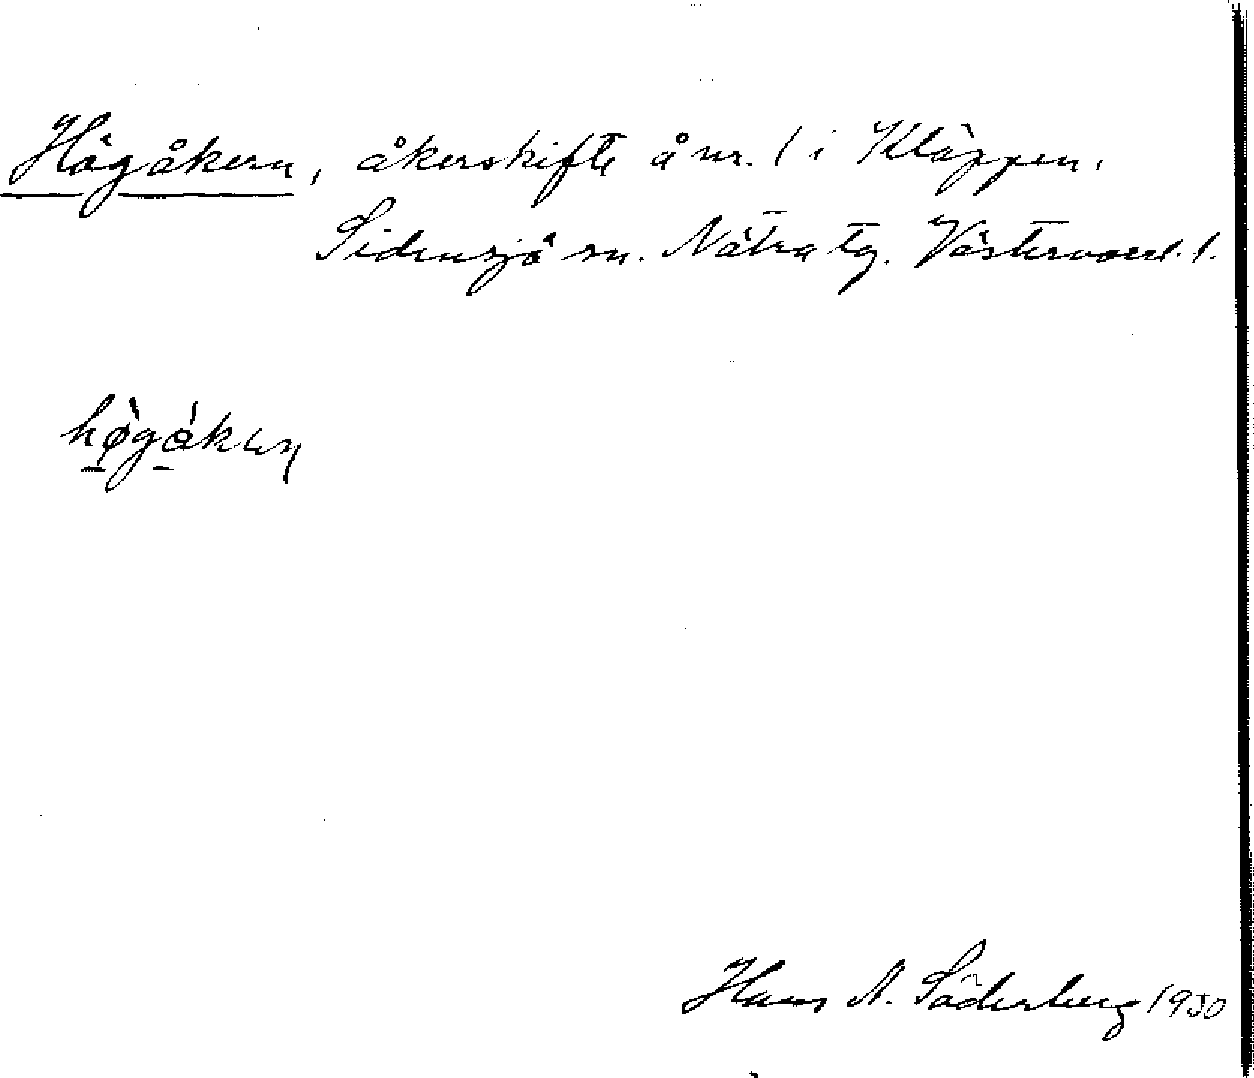 Högåkern, åkerskifte å nr. 1 i Kläppen.
Sidensjö sn. Nätra tg. Västernorrl. l.
Hans N. Söderberg 1930